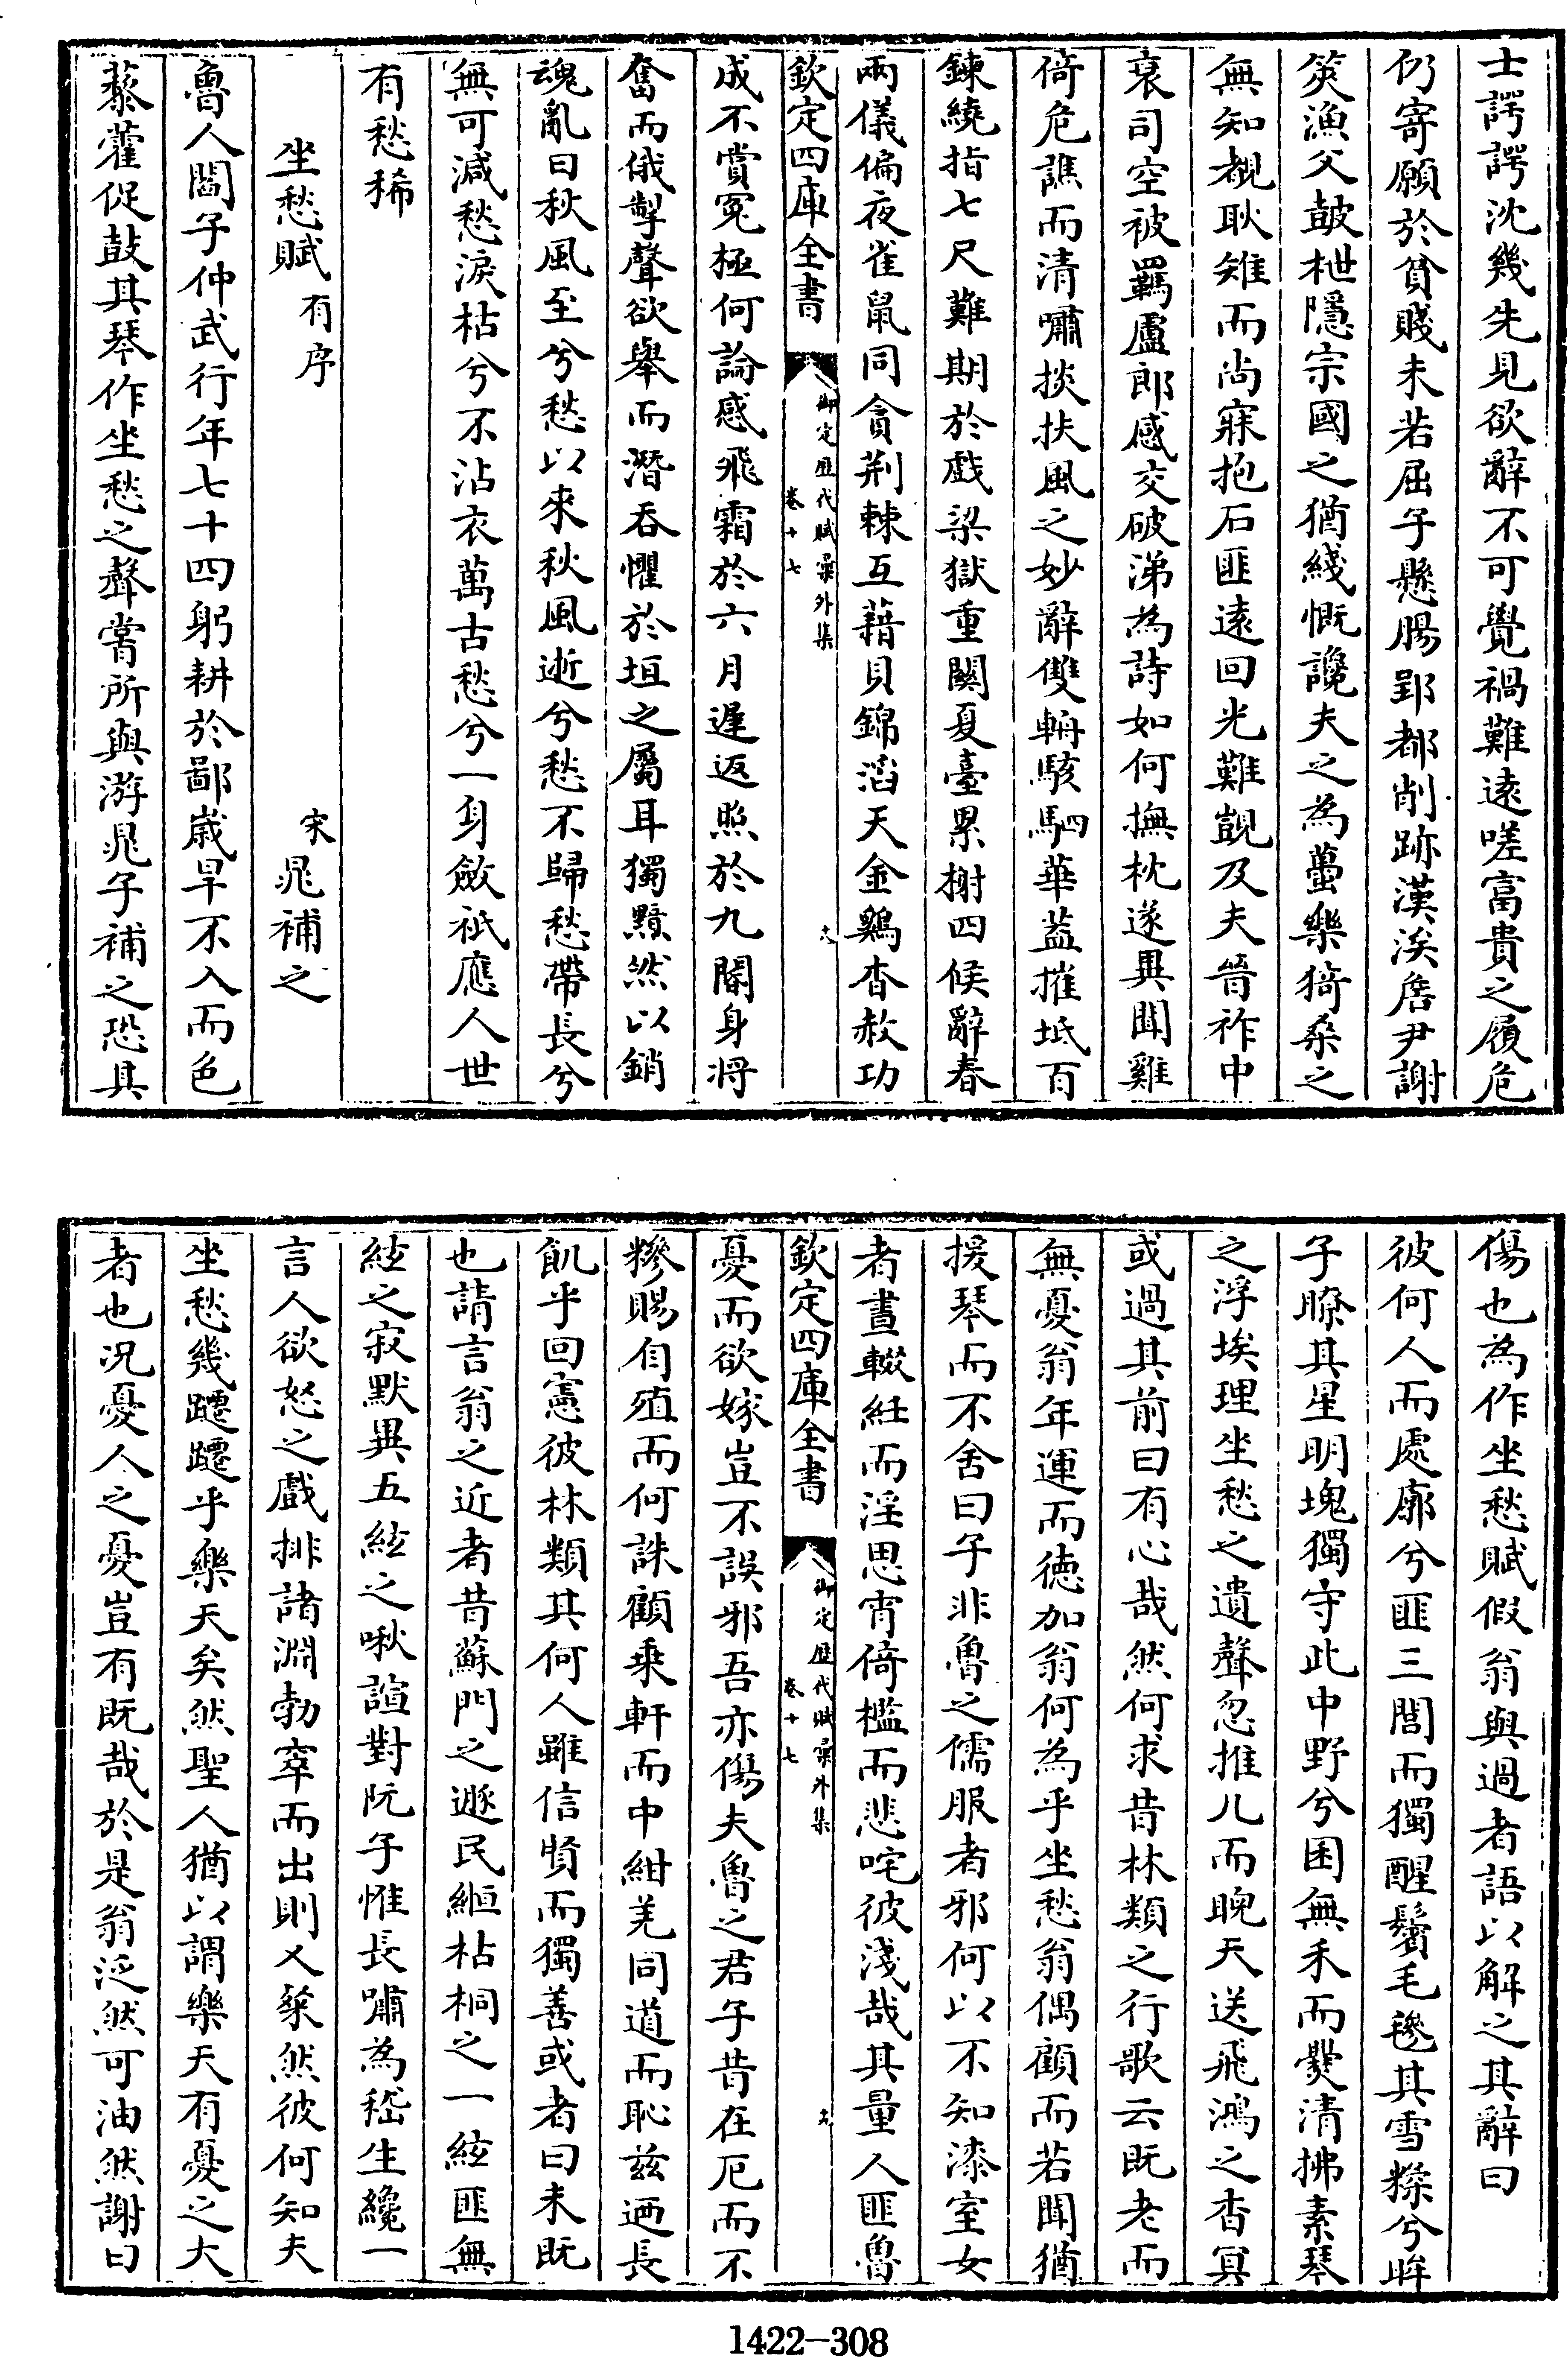 士諤諤沈幾先見欲辭不可覺禍難遠嗟富貴之履危
仍寄願於貧賤未若屈子懸腸郢都削跡漢涘詹尹謝
筴漁父鼓枻隱宗國之猶綫慨讒夫之為蠆樂猗桑之
無知覩耿雉而尚寐抱石匪遠回光難覬及夫晉祚中
衰司空被羈盧郎感交破涕為詩如何撫枕遂異聞雞
倚危譙而清嘯掞扶風之妙辭雙輈駭駟華蓋摧坻百
鍊繞指七尺難期於戯梁獄重關夏臺累榭四候辭春
兩儀偏夜雀鼠同貪荆棘互藉貝錦滔天金鷄杳赦功
欽定四庫全書
御定歴代賦彚外集
卷十七
成不賞寃極何論感飛霜於六月遲返照於九閽身将
奮而俄掣聲欲舉而潛吞懼於垣之屬耳獨黯然以銷
魂亂曰秋風至兮愁以來秋風逝兮愁不歸愁帶長兮
無可減愁淚枯兮不沾衣萬古愁兮一身斂祇應人世
有愁稀
坐愁賦有序
宋晁補之
魯人閻子仲武行年七十四躬耕於鄙歳旱不入而色
藜藿促鼓其琴作坐愁之聲嘗所與游晁子補之恐其
傷也為作坐愁賦假翁與過者語以解之其辭曰
彼何人而處廓兮匪三閭而獨醒鬢毛毿其雪糝兮眸
子瞭其星明塊獨守此中野兮困無禾而爨清拂素琴
之浮埃理坐愁之遺聲忽推几而睨天送飛鴻之杳冥
或過其前曰有心哉然何求昔林類之行歌云既老而
無憂翁年運而徳加翁何為乎坐愁翁偶顧而若聞猶
援琴而不舍曰子非魯之儒服者邪何以不知漆室女
者晝輟紝而淫思宵倚檻而悲咤彼淺哉其量人匪魯
欽定四庫全書
御定歴代賦彚外集
卷十七
憂而欲嫁豈不誤邪吾亦傷夫魯之君子昔在厄而不
糝賜自殖而何誅顧乘軒而中紺羌同道而恥兹廼長
飢乎回憲彼林類其何人雖信賢而獨善或者曰未既
也請言翁之近者昔蘇門之遯民絙枯桐之一絃匪無
絃之寂默異五絃之啾諠對阮子惟長嘯為嵇生纔一
言人欲怒之戲排諸淵勃窣而出則又粲然彼何知夫
坐愁幾躚躚乎樂天矣然聖人猶以謂樂天有憂之大
者也况憂人之憂豈有既哉於是翁泛然可油然謝曰
1422-308